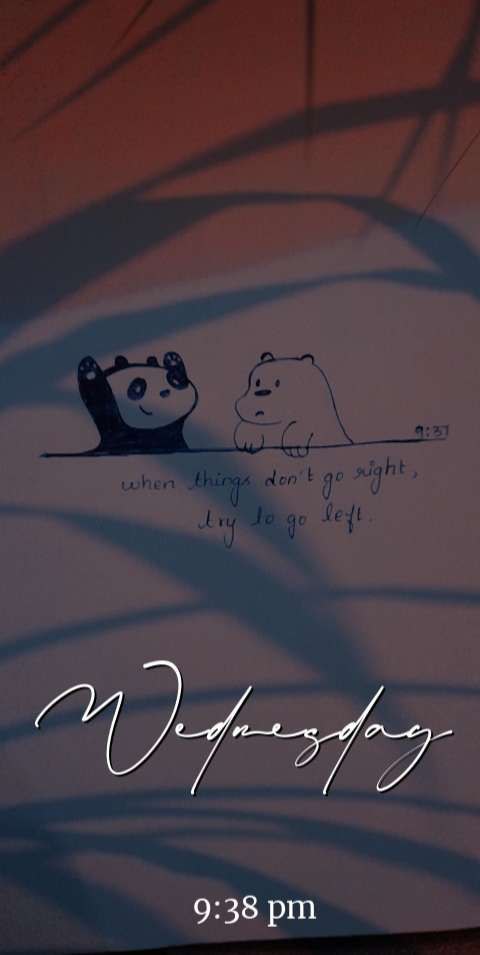 9:37
when things don't go right,
try to go left.
Wednesday
9:38 pm